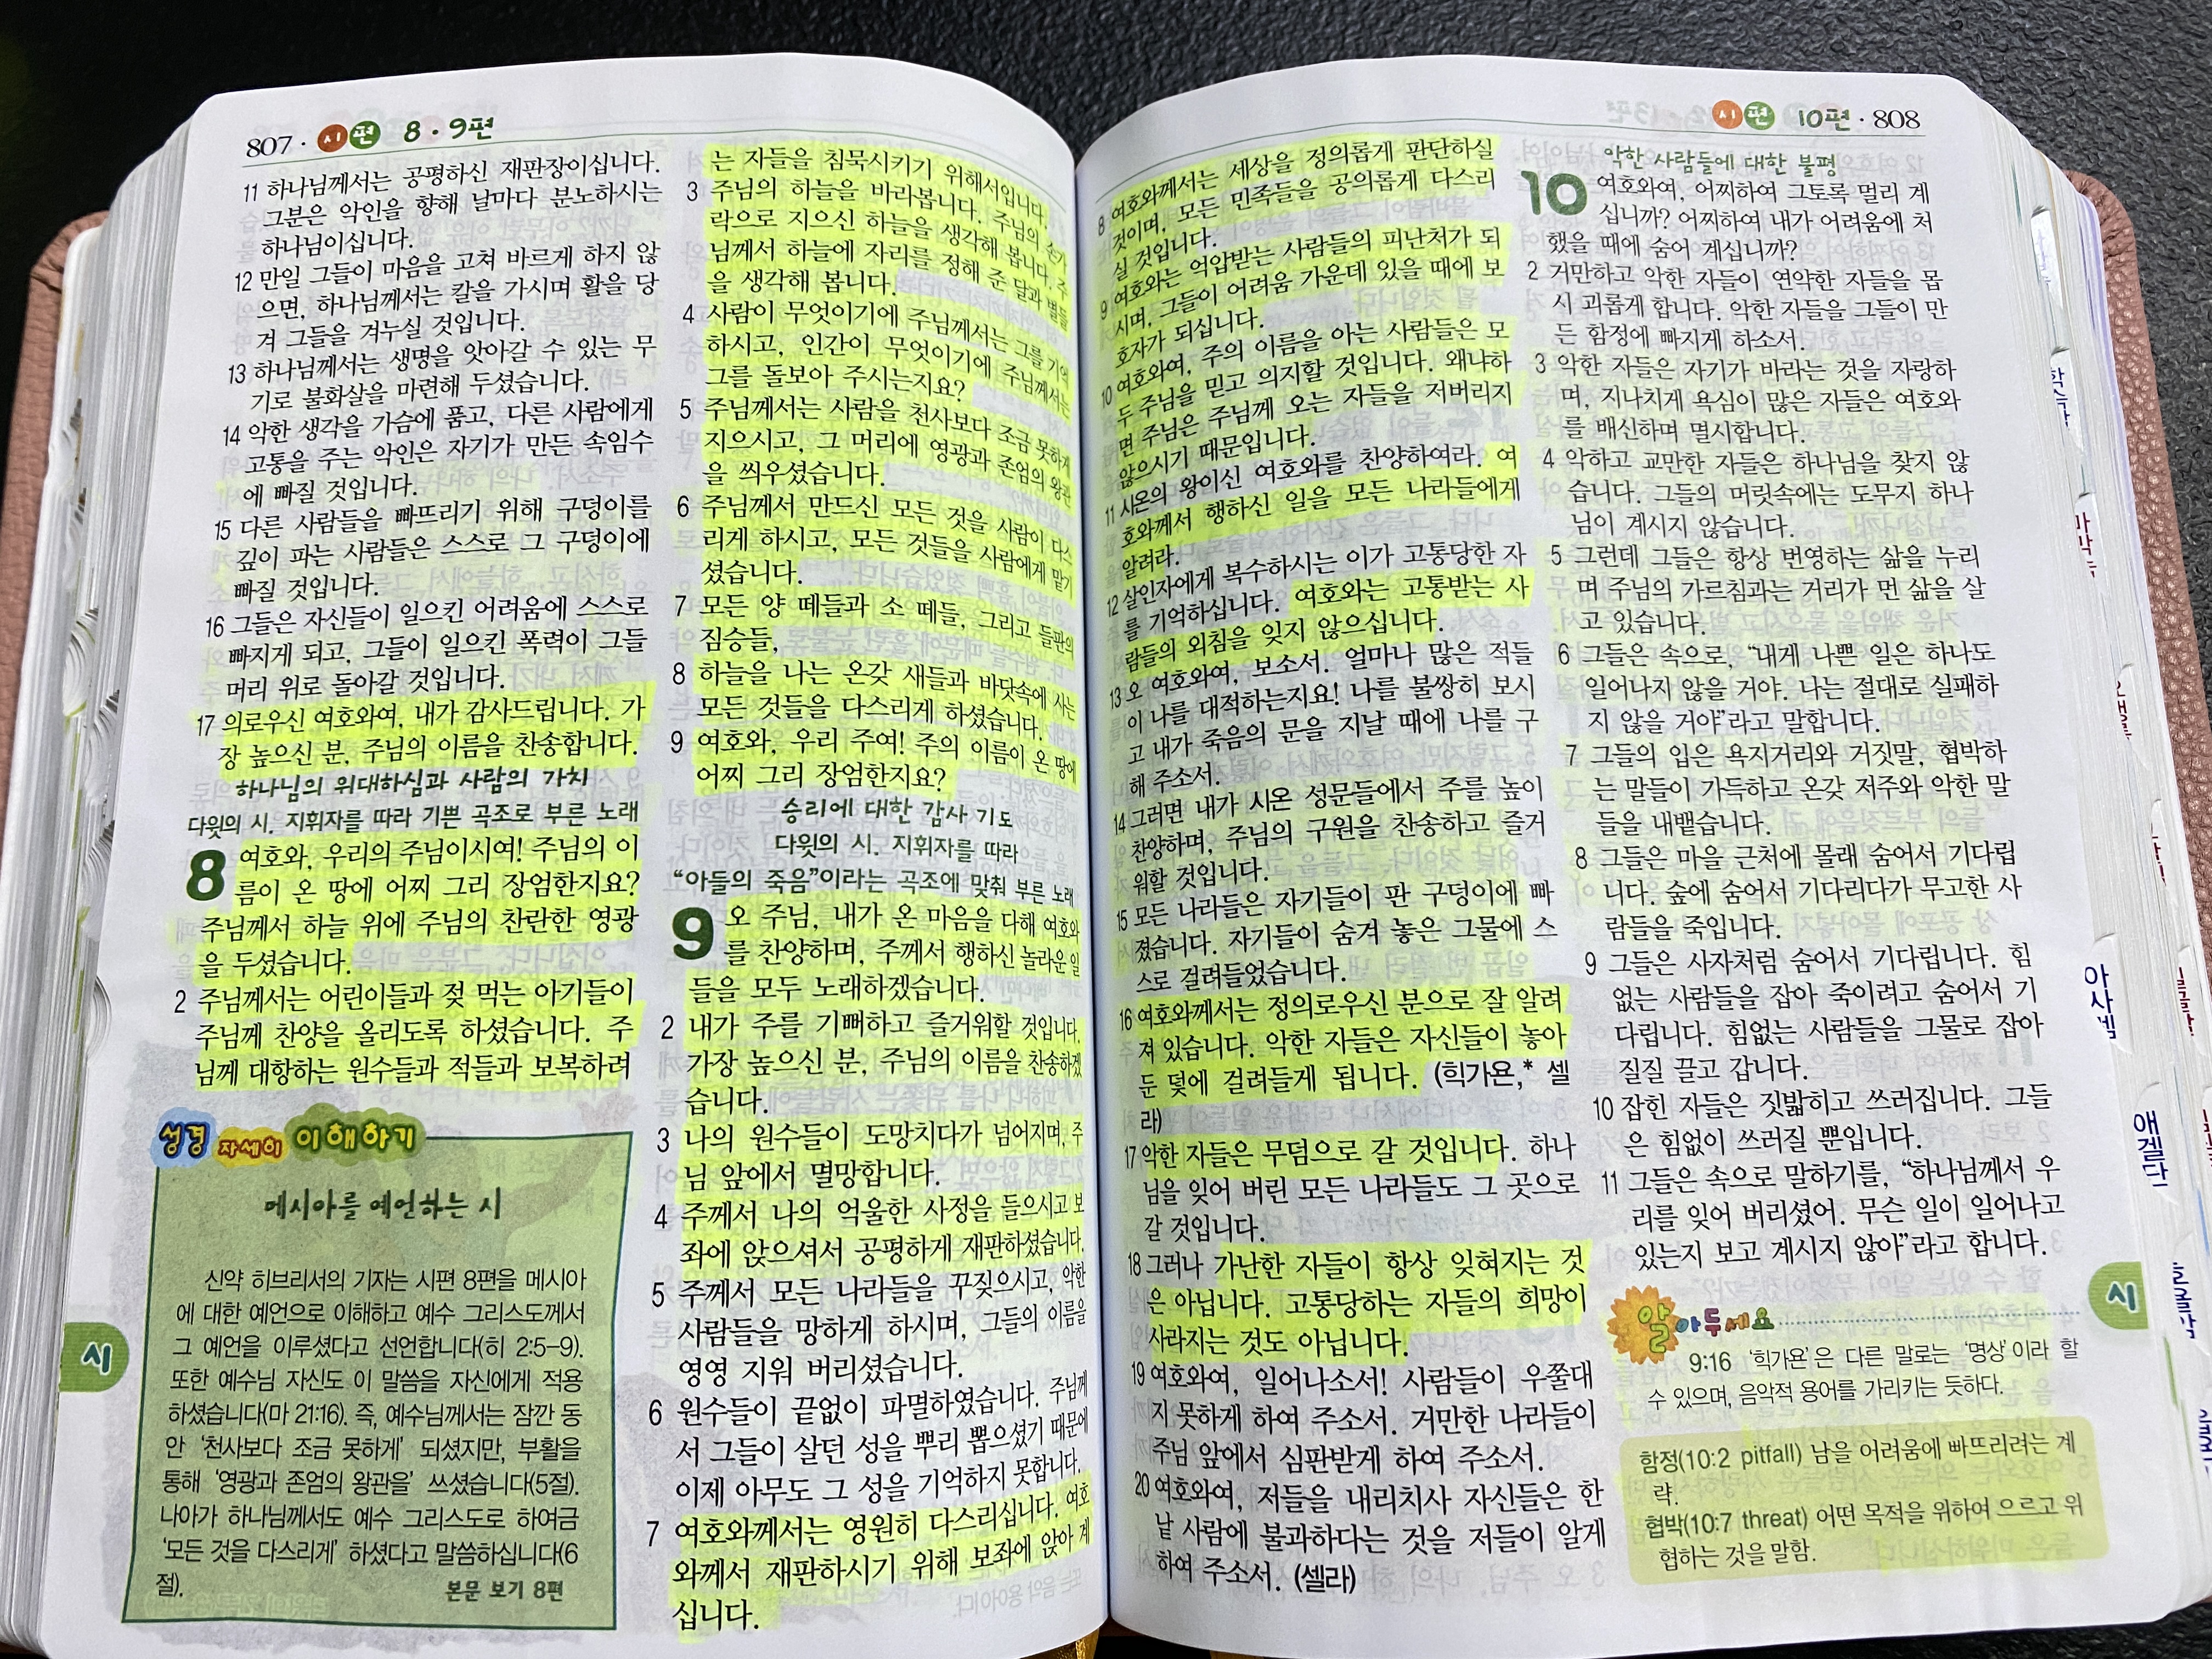 807 · 시편 8 · 9편
11 하나님께서는 공평하신 재판장이십니다.
그분은 악인을 향해 날마다 분노하시는
하나님이십니다.
12 만일 그들이 마음을 고쳐 바르게 하지 않
으면, 하나님께서는 칼을 가시며 활을 당
겨 그들을 겨누실 것입니다.
13 하나님께서는 생명을 앗아갈 수 있는 무
기로 불화살을 마련해 두셨습니다.
14 악한 생각을 가슴에 품고, 다른 사람에게
고통을 주는 악인은 자기가 만든 속임수
에 빠질 것입니다.
15 다른 사람들을 빠뜨리기 위해 구덩이를
깊이 파는 사람들은 스스로 그 구덩이에
빠질 것입니다.
16 그들은 자신들이 일으킨 어려움에 스스로
빠지게 되고, 그들이 일으킨 폭력이 그들
머리 위로 돌아갈 것입니다.
17 의로우신 여호와여, 내가 감사드립니다. 가
장 높으신 분, 주님의 이름을 찬송합니다.
하나님의 위대하심과 사람의 가치
다윗의 시. 지휘자를 따라 기쁜 곡조로 부른 노래
8 여호와, 우리의 주님이시여! 주님의 이
름이 온 땅에 어찌 그리 장엄한지요?
주님께서 하늘 위에 주님의 찬란한 영광
을 두셨습니다.
2 주님께서는 어린이들과 젖 먹는 아기들이
주님께 찬양을 올리도록 하셨습니다. 주
님께 대항하는 원수들과 적들과 보복하려
성경 자세히 이해하기
메시아를 예언하는 시
신약 히브리서의 기자는 시편 8편을 메시아
에 대한 예언으로 이해하고 예수 그리스도께서
그 예언을 이루셨다고 선언합니다(히 2:5-9).
또한 예수님 자신도 이 말씀을 자신에게 적용
하셨습니다(마 21:16). 즉, 예수님께서는 잠깐 동
안 '천사보다 조금 못하게' 되셨지만, 부활을
통해 '영광과 존엄의 왕관을' 쓰셨습니다(5절).
나아가 하나님께서도 예수 그리스도로 하여금
'모든 것을 다스리게' 하셨다고 말씀하십니다(6
절).
본문 보기 8편
시
는 자들을 침묵시키기 위해서입니다.
3 주님의 하늘을 바라봅니다. 주님의 손가
락으로 지으신 하늘을 생각해 봅니다. 주
님께서 하늘에 자리를 정해 준 달과 별들
을 생각해 봅니다.
4 사람이 무엇이기에 주님께서는 그를 기억
하시고, 인간이 무엇이기에 주님께서는
그를 돌보아 주시는지요?
5 주님께서는 사람을 천사보다 조금 못하게
지으시고, 그 머리에 영광과 존엄의 왕관
을 씌우셨습니다.
6 주님께서 만드신 모든 것을 사람이 다스
리게 하시고, 모든 것들을 사람에게 맡기
셨습니다.
7 모든 양 떼들과 소 떼들, 그리고 들판의
짐승들,
8 하늘을 나는 온갖 새들과 바닷속에 사는
모든 것들을 다스리게 하셨습니다.
9 여호와, 우리 주여! 주의 이름이 온 땅에
어찌 그리 장엄한지요?
승리에 대한 감사 기도
다윗의 시. 지휘자를 따라
“아들의 죽음”이라는 곡조에 맞춰 부른 노래
9 오 주님, 내가 온 마음을 다해 여호와
를 찬양하며, 주께서 행하신 놀라운 일
들을 모두 노래하겠습니다.
2 내가 주를 기뻐하고 즐거워할 것입니다.
가장 높으신 분, 주님의 이름을 찬송하겠
습니다.
3 나의 원수들이 도망치다가 넘어지며, 주
님 앞에서 멸망합니다.
4 주께서 나의 억울한 사정을 들으시고 보
좌에 앉으셔서 공평하게 재판하셨습니다.
5 주께서 모든 나라들을 꾸짖으시고, 악한
사람들을 망하게 하시며, 그들의 이름을
영영 지워 버리셨습니다.
6 원수들이 끝없이 파멸하였습니다. 주님께
서 그들이 살던 성을 뿌리 뽑으셨기 때문에
이제 아무도 그 성을 기억하지 못합니다.
7 여호와께서는 영원히 다스리십니다. 여호
와께서 재판하시기 위해 보좌에 앉아 계
십니다.
시편 10편 · 808
8 여호와께서는 세상을 정의롭게 판단하실
것이며, 모든 민족들을 공의롭게 다스리
실 것입니다.
9 여호와는 억압받는 사람들의 피난처가 되
시며, 그들이 어려움 가운데 있을 때에 보
호자가 되십니다.
10 여호와여, 주의 이름을 아는 사람들은 모
두 주님을 믿고 의지할 것입니다. 왜냐하
면 주님은 주님께 오는 자들을 저버리지
않으시기 때문입니다.
11 시온의 왕이신 여호와를 찬양하여라. 여
호와께서 행하신 일을 모든 나라들에게
알려라.
12 살인자에게 복수하시는 이가 고통당한 자
를 기억하십니다. 여호와는 고통받는 사
람들의 외침을 잊지 않으십니다.
13 오 여호와여, 보소서. 얼마나 많은 적들
이 나를 대적하는지요! 나를 불쌍히 보시
고 내가 죽음의 문을 지날 때에 나를 구
해 주소서.
14 그러면 내가 시온 성문들에서 주를 높이
찬양하며, 주님의 구원을 찬송하고 즐거
워할 것입니다.
15 모든 나라들은 자기들이 판 구덩이에 빠
졌습니다. 자기들이 숨겨 놓은 그물에 스
스로 걸려들었습니다.
16 여호와께서는 정의로우신 분으로 잘 알려
져 있습니다. 악한 자들은 자신들이 놓아
둔 덫에 걸려들게 됩니다. (힉가욘,* 셀
라)
17 악한 자들은 무덤으로 갈 것입니다. 하나
님을 잊어 버린 모든 나라들도 그 곳으로
갈 것입니다.
18 그러나 가난한 자들이 항상 잊혀지는 것
은 아닙니다. 고통당하는 자들의 희망이
사라지는 것도 아닙니다.
19 여호와여, 일어나소서! 사람들이 우쭐대
지 못하게 하여 주소서. 거만한 나라들이
주님 앞에서 심판받게 하여 주소서.
20 여호와여, 저들을 내리치사 자신들은 한
낱 사람에 불과하다는 것을 저들이 알게
하여 주소서. (셀라)
악한 사람들에 대한 불평
10 여호와여, 어찌하여 그토록 멀리 계
십니까? 어찌하여 내가 어려움에 처
했을 때에 숨어 계십니까?
2 거만하고 악한 자들이 연약한 자들을 몹
시 괴롭게 합니다. 악한 자들을 그들이 만
든 함정에 빠지게 하소서.
3 악한 자들은 자기가 바라는 것을 자랑하
며, 지나치게 욕심이 많은 자들은 여호와
를 배신하며 멸시합니다.
4 악하고 교만한 자들은 하나님을 찾지 않
습니다. 그들의 머릿속에는 도무지 하나
님이 계시지 않습니다.
5 그런데 그들은 항상 번영하는 삶을 누리
며 주님의 가르침과는 거리가 먼 삶을 살
고 있습니다.
6 그들은 속으로, “내게 나쁜 일은 하나도
일어나지 않을 거야. 나는 절대로 실패하
지 않을 거야”라고 말합니다.
7 그들의 입은 욕지거리와 거짓말, 협박하
는 말들이 가득하고 온갖 저주와 악한 말
들을 내뱉습니다.
8 그들은 마을 근처에 몰래 숨어서 기다립
니다. 숲에 숨어서 기다리다가 무고한 사
람들을 죽입니다.
9 그들은 사자처럼 숨어서 기다립니다. 힘
없는 사람들을 잡아 죽이려고 숨어서 기
다립니다. 힘없는 사람들을 그물로 잡아
질질 끌고 갑니다.
10 잡힌 자들은 짓밟히고 쓰러집니다. 그들
은 힘없이 쓰러질 뿐입니다.
11 그들은 속으로 말하기를, “하나님께서 우
리를 잊어 버리셨어. 무슨 일이 일어나고
있는지 보고 계시지 않아”라고 합니다.
알아두세요
9:16 '힉가욘'은 다른 말로는 '명상'이라 할
수 있으며, 음악적 용어를 가리키는 듯하다.
함정(10:2 pitfall) 남을 어려움에 빠뜨리려는 계
략.
협박(10:7 threat) 어떤 목적을 위하여 으르고 위
협하는 것을 말함.
시
아사셀